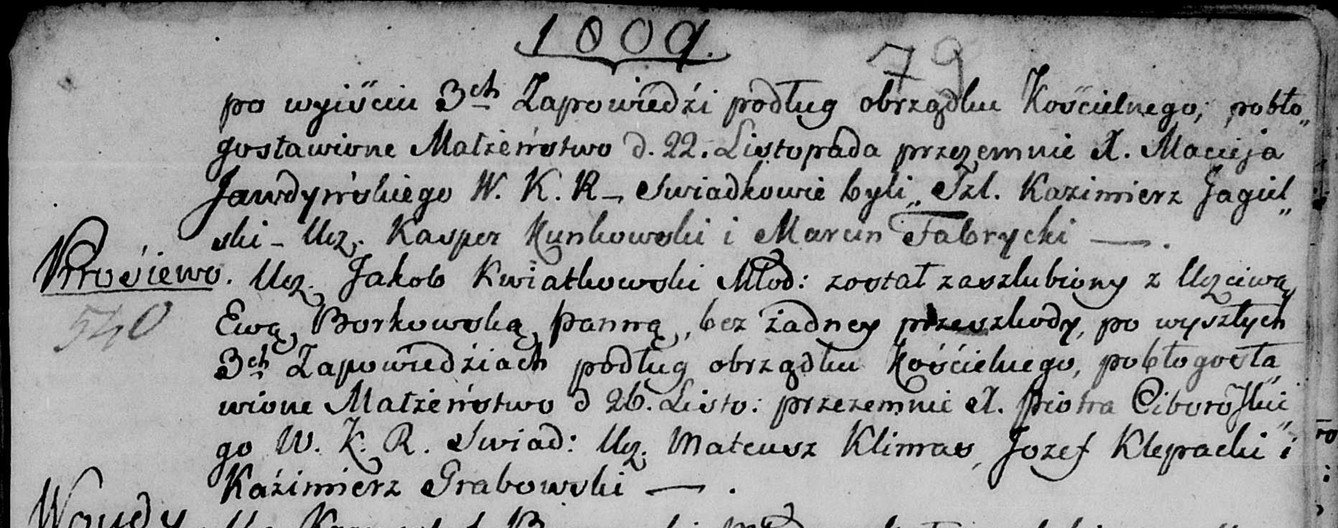 1809.
79
po wyiściu 3ch Zapowiedźi podług obrządku Kościelnego, pobło„
gosławione Małżeństwo d. 22. Listopada przezemnie X. Macieja
Jawdyńskiego W. K. R – Swiadkowie byli„ Szl. Kazimierz Jagiel„
ski – Ucz. Kasper Kunkowski i Marcin Fabrycki — .
Mrosiewo. Ucz. Jakob Kwiatkowski Młod: został zaszlubiony z Uczciwą
540
Ewą Borkowską, panną, bez żadney przeszkody, po wyszłych
3ch Zapowiedźiach podług obrządku Kościelnego, pobłogosła„
wione Małżeństwo d 26. Listo: przezemnie X. Piotra Ciborskie„
go W. K. R. Swiad: Ucz. Mateusz Klimas, Jozef Klepacki i
Kaźimierz Grabowski — .